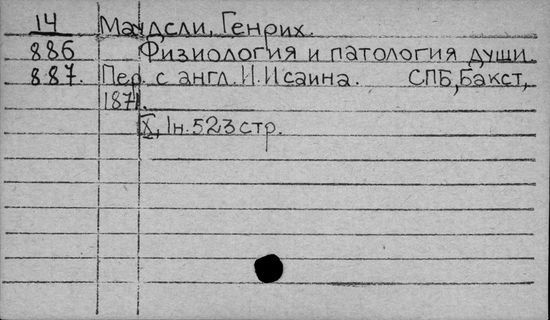 14 Маудсли, Генрих.
886 Физиология и патология души.
887. Пер. с англ. И. Исаина. СПБ, Бакст,
1871.
X, 1н. 523 стр.